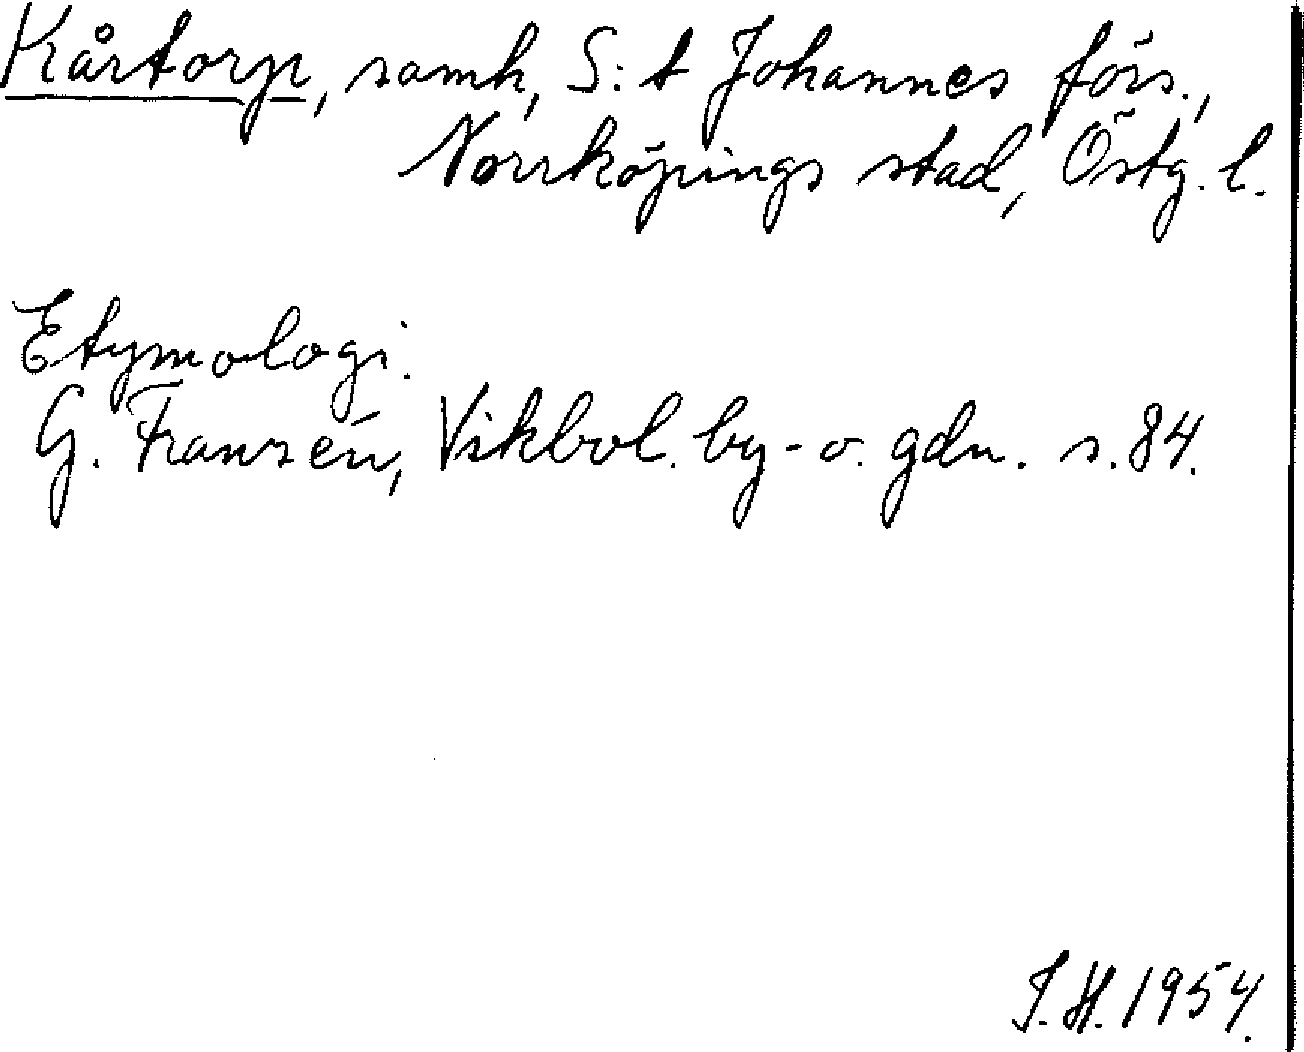 Kårtorp, samh, S:t Johannes förs.,
Norrköpings stad, Östg. l.
Etymologi.
G. Franzén, Vikbol. by- o. gdn. s. 84.
I.H. 1954.